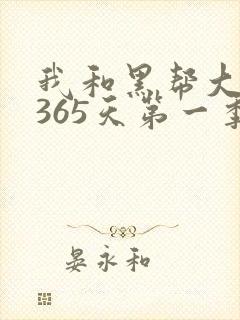 我和黑帮大
365天第一季
晏永和